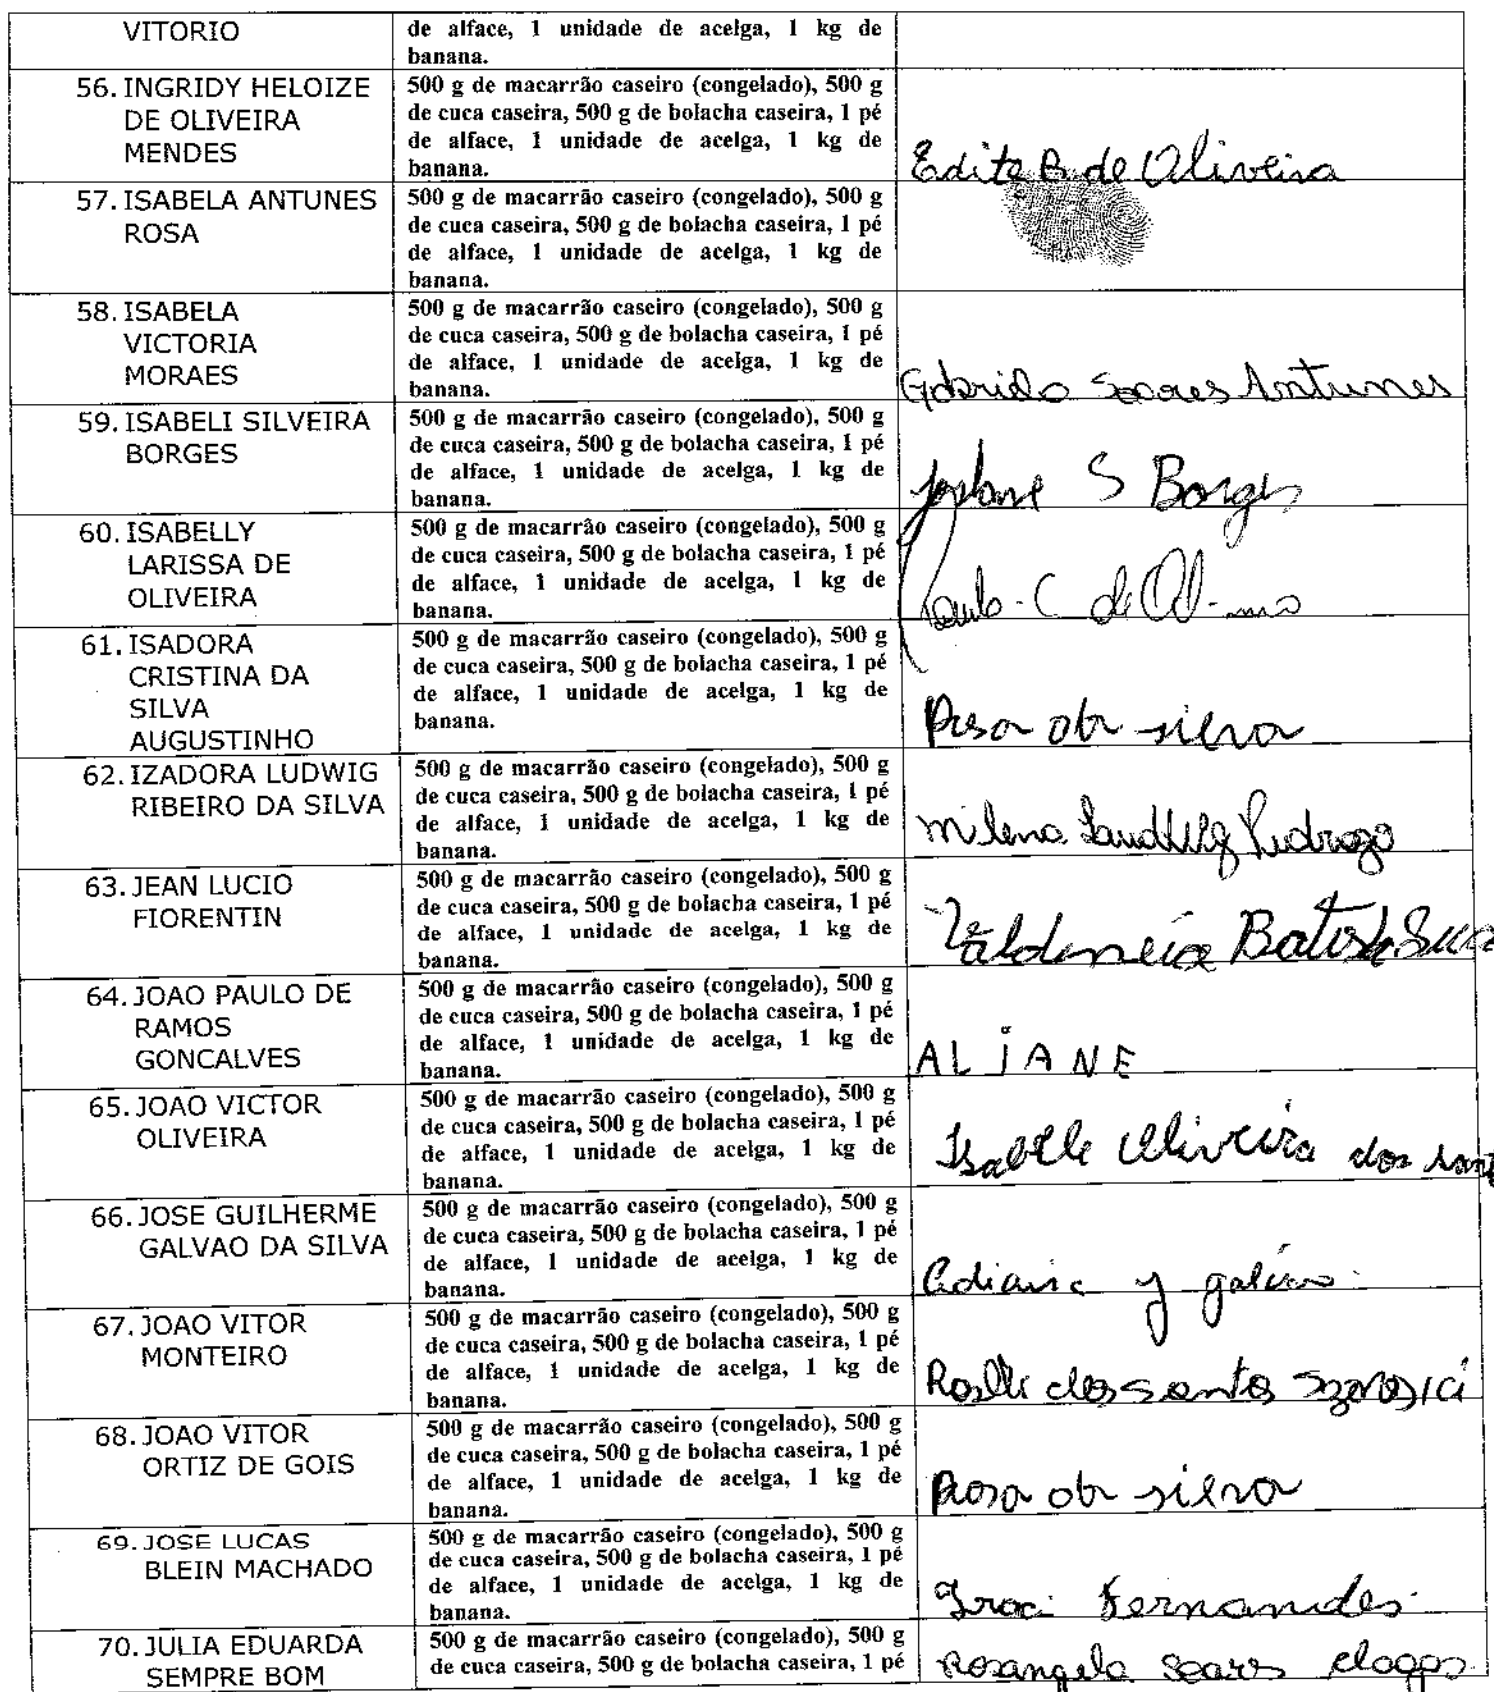 VITORIO
de alface, 1 unidade de acelga, 1 kg de
banana.
56. INGRIDY HELOIZE
DE OLIVEIRA
MENDES
500 g de macarrão caseiro (congelado), 500 g
de cuca caseira, 500 g de bolacha caseira, 1 pé
de alface, 1 unidade de acelga, 1 kg de
banana.
Edite B. de Oliveira
57. ISABELA ANTUNES
ROSA
500 g de macarrão caseiro (congelado), 500 g
de cuca caseira, 500 g de bolacha caseira, 1 pé
de alface, 1 unidade de acelga, 1 kg de
banana.
58. ISABELA
VICTORIA
MORAES
500 g de macarrão caseiro (congelado), 500 g
de cuca caseira, 500 g de bolacha caseira, 1 pé
de alface, 1 unidade de acelga, 1 kg de
banana.
Gabriela Soares Antunes
59. ISABELI SILVEIRA
BORGES
500 g de macarrão caseiro (congelado), 500 g
de cuca caseira, 500 g de bolacha caseira, 1 pé
de alface, 1 unidade de acelga, 1 kg de
banana.
S Borges
60. ISABELLY
LARISSA DE
OLIVEIRA
500 g de macarrão caseiro (congelado), 500 g
de cuca caseira, 500 g de bolacha caseira, 1 pé
de alface, 1 unidade de acelga, 1 kg de
banana.
C de
61. ISADORA
CRISTINA DA
SILVA
AUGUSTINHO
500 g de macarrão caseiro (congelado), 500 g
de cuca caseira, 500 g de bolacha caseira, 1 pé
de alface, 1 unidade de acelga, 1 kg de
banana.
Rosa da silva
62. IZADORA LUDWIG
RIBEIRO DA SILVA
500 g de macarrão caseiro (congelado), 500 g
de cuca caseira, 500 g de bolacha caseira, 1 pé
de alface, 1 unidade de acelga, 1 kg de
banana.
milena
63. JEAN LUCIO
FIORENTIN
500 g de macarrão caseiro (congelado), 500 g
de cuca caseira, 500 g de bolacha caseira, 1 pé
de alface, 1 unidade de acelga, 1 kg de
banana.
Valdineia Batista
64. JOAO PAULO DE
RAMOS
GONCALVES
500 g de macarrão caseiro (congelado), 500 g
de cuca caseira, 500 g de bolacha caseira, 1 pé
de alface, 1 unidade de acelga, 1 kg de
banana.
ALIANE
65. JOAO VICTOR
OLIVEIRA
500 g de macarrão caseiro (congelado), 500 g
de cuca caseira, 500 g de bolacha caseira, 1 pé
de alface, 1 unidade de acelga, 1 kg de
banana.
Isabele Oliveira dos
66. JOSE GUILHERME
GALVAO DA SILVA
500 g de macarrão caseiro (congelado), 500 g
de cuca caseira, 500 g de bolacha caseira, 1 pé
de alface, 1 unidade de acelga, 1 kg de
banana.
67. JOAO VITOR
MONTEIRO
500 g de macarrão caseiro (congelado), 500 g
de cuca caseira, 500 g de bolacha caseira, 1 pé
de alface, 1 unidade de acelga, 1 kg de
banana.
dos santos
68. JOAO VITOR
ORTIZ DE GOIS
500 g de macarrão caseiro (congelado), 500 g
de cuca caseira, 500 g de bolacha caseira, 1 pé
de alface, 1 unidade de acelga, 1 kg de
banana.
Rosa da silva
69. JOSE LUCAS
BLEIN MACHADO
500 g de macarrão caseiro (congelado), 500 g
de cuca caseira, 500 g de bolacha caseira, 1 pé
de alface, 1 unidade de acelga, 1 kg de
banana.
Iraci Fernandes
70. JULIA EDUARDA
SEMPRE BOM
500 g de macarrão caseiro (congelado), 500 g
de cuca caseira, 500 g de bolacha caseira, 1 pé
Rosangela Soares